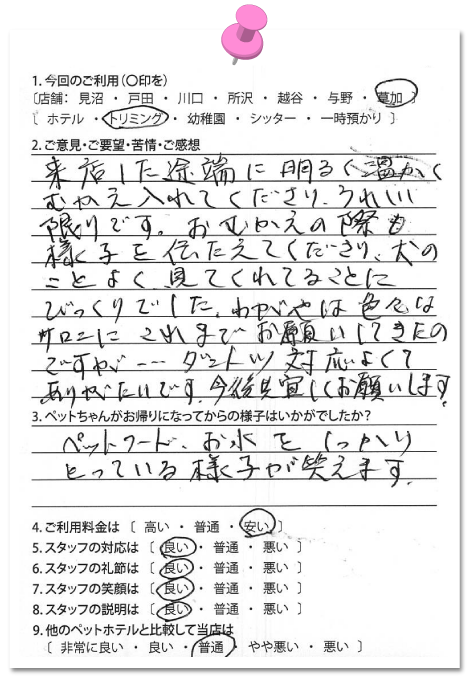 1.今回のご利用(〇印を)
〔店舗： 見沼 ・ 戸田 ・ 川口 ・ 所沢 ・ 越谷 ・ 与野 ・ 草加 〕
〔 ホテル ・ トリミング ・ 幼稚園 ・ シッター ・ 一時預かり 〕
2.ご意見・ご要望・苦情・ご感想
来店した途端に明るく温かく
むかえ入れてくださり、うれしい
限りです。おむかえの際も
様子を伝たえてくださり、犬の
ことよく見てくれてることに
びっくりでした。わがやは色々な
サロンにこれまでお願いしてきたの
ですが… ダントツ対応よくて
ありがたいです。今後共宜しくお願いします。
3.ペットちゃんがお帰りになってからの様子はいかがでしたか？
ペットフード、お水をしっかり
とっている様子が笑えます。
4.ご利用料金は 〔 高い ・ 普通 ・ 安い 〕
5.スタッフの対応は 〔 良い ・ 普通 ・ 悪い 〕
6.スタッフの礼節は 〔 良い ・ 普通 ・ 悪い 〕
7.スタッフの笑顔は 〔 良い ・ 普通 ・ 悪い 〕
8.スタッフの説明は 〔 良い ・ 普通 ・ 悪い 〕
9.他のペットホテルと比較して当店は
〔 非常に良い ・ 良い ・ 普通 ・ やや悪い ・ 悪い 〕